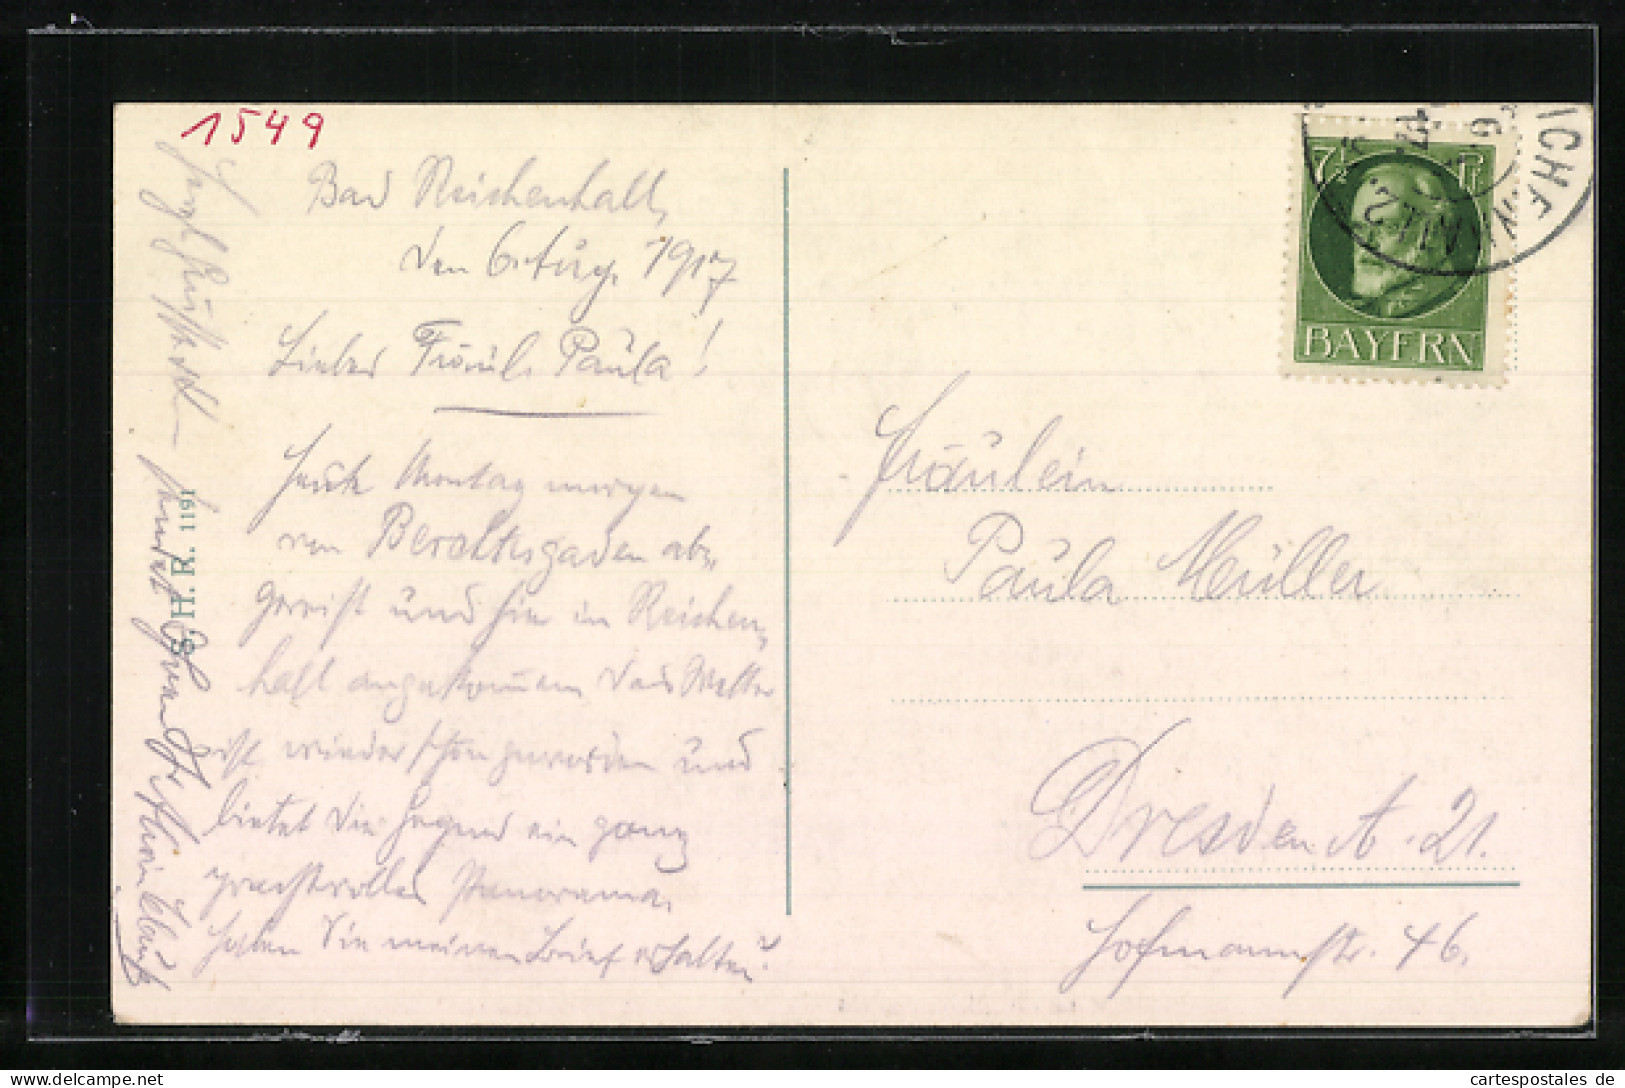 1549
Bad Reichenhall,
den 6. Aug. 1917
Liebes Fräul. Paula!
Heute Montag morgen
von Berchtesgaden ab-
gereist und hier in Reichen-
hall angekommen. Das Wetter
ist wieder schön geworden und
bietet die Gegend ein ganz
prachtvolles Panorama.
Haben Sie meinen Brief erhalten?
sendet Ihnen
S. H. R. 1191
7½ Pf
BAYERN
Fräulein
Paula Müller
Dresden A. 21.
Hofmannstr. 46.
cartespostales de